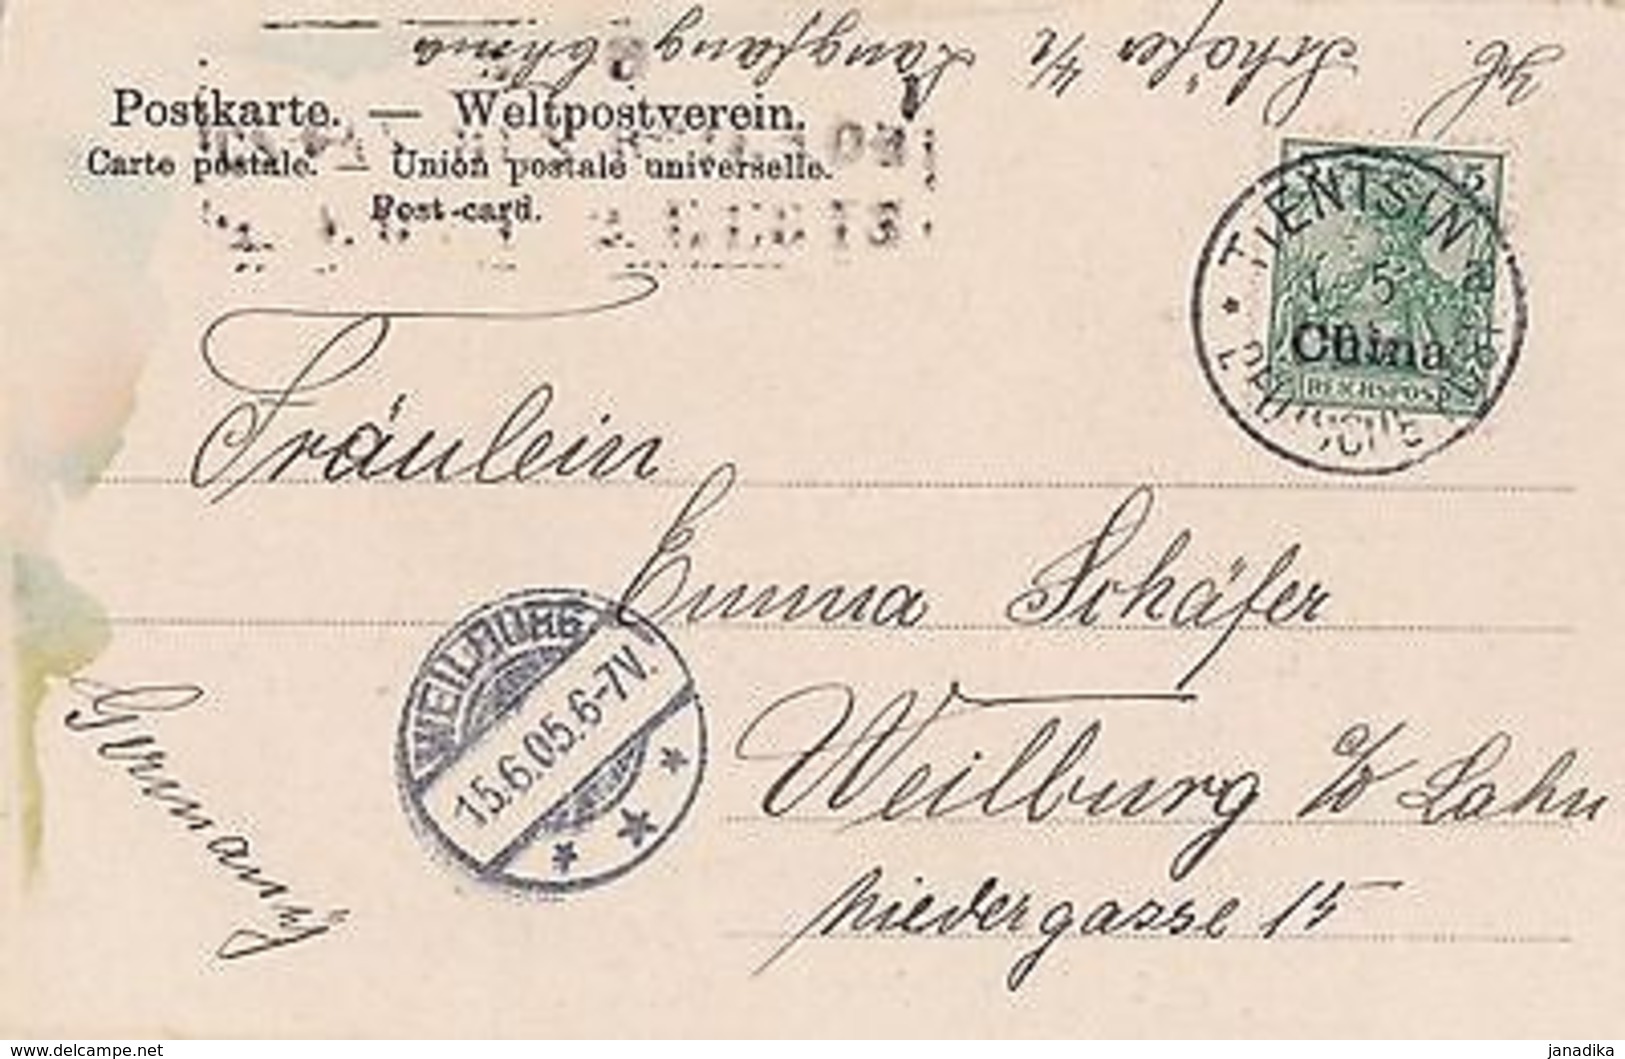 Schäfer Langfang China
Postkarte. — Weltpostverein.
Carte postale. — Union postale universelle.
Post-card.
5
China
REICHSPOST
* TIENTSIN *
1 5 a
DEUTSCHE
Fräulein
Emma Schäfer
Weilburg a/d Lahn
niedergasse 15
Germany
WEILBURG
15.6.05.6-7V.
www.delcampe.net
janadika